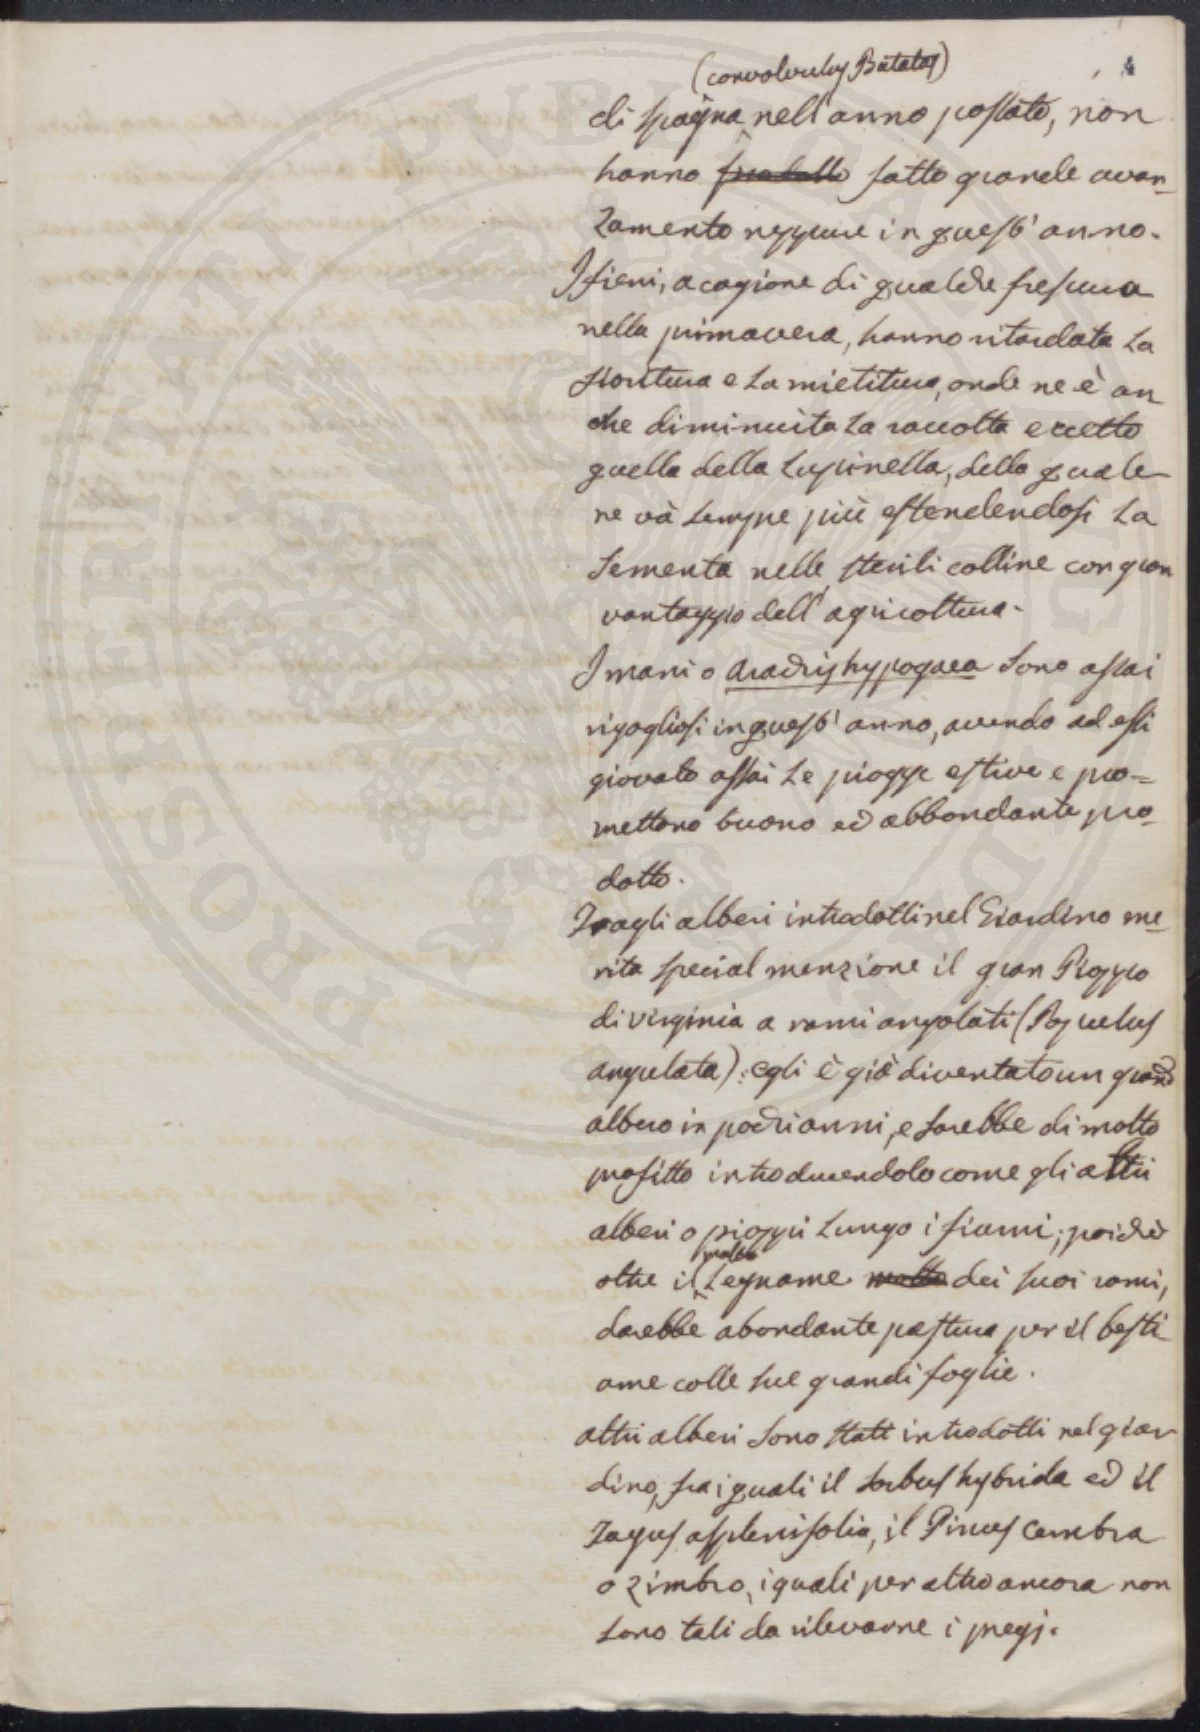 4
(convolvulus Batatas)
di spagna nell'anno passato, non
hanno fatto grande avan-
zamento neppure in quest'anno.
I fieni, a cagione di qualche frescura
nella primavera, hanno ritardata la
fioritura e la mietitura, onde ne è an-
che diminuita la raccolta eccetto
quella della Lupinella, della quale
ne và sempre più estendendosi la
sementa nelle sterili colline con gran
vantaggio dell'agricoltura.
I mani o arachis hypogaea sono assai
rigogliosi in quest'anno, avendo ad essi
giovato assai le piogge estive e pro-
mettono buono ed abbondante pro-
dotto.
Fragli alberi introdotti nel Giardino me-
rita special menzione il gran Pioppo
di virginia a rami angolati (Populus
angulata): egli è già diventato un grand
albero in pochi anni, e sarebbe di molto
profitto introducendolo come gli altri
alberi o pioppi lungo i fiumi; poichè
molto
oltre il legname molto dei suoi rami,
darebbe abondante pastura per il besti
ame colle sue grandi foglie.
altri alberi sono stati introdotti nel giar-
dino, fra i quali il sorbus hybrida ed il
Fagus asplenifolia, il Pinus cembra
o zimbro, i quali per altro ancora non
sono tali da rilevarne i pregj.
PROSPERITATI PVBLICAE